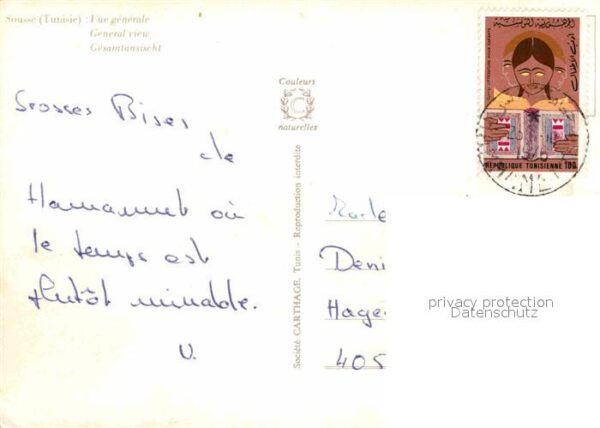 Sousse (Tunisie) : Vue générale
General view
Gesamtansischt
Grosses Bises
de
Hammamet où
le temps est
plutôt minable.
V.
Couleurs
C
naturelles
Société CARTHAGE, Tunis - Reproduction interdite
REPUBLIQUE TUNISIENNE 100
Deni
Hage
405
privacy protection
Datenschutz